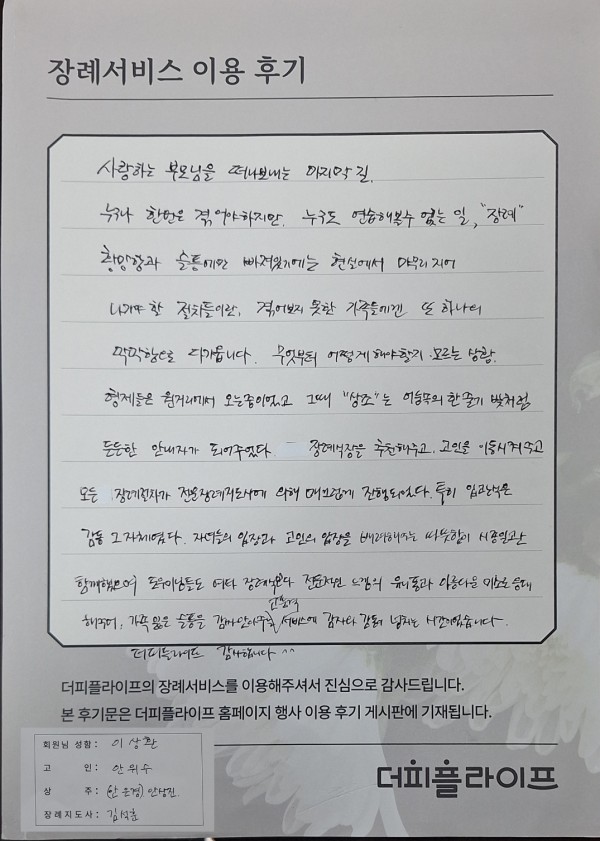 장례서비스 이용 후기
사랑하는 부모님을 떠나보내는 마지막 길.
누구나 한번은 겪어야하지만, 누구도 연습해볼수 없는 일, "장례"
황망함과 슬픔에만 빠져있기에는 현실에서 마무리 지어
나가야 할 절차들이란, 겪어보지 못한 가족들에겐 또 하나의
막막함으로 다가옵니다. 무엇부터 어떻게 해야할지 모르는 상황.
형제들은 원거리에서 오는중이었고 그때 "상조"는 어둠속의 한줄기 빛처럼
든든한 안내자가 되어주었다. 장례식장을 추천해주고, 고인을 이동시켜주고
모든 장례절차가 전문장례지도사에 의해 매끄럽게 진행되었다. 특히 입관식은
감동 그자체였다. 자녀들의 입장과 고인의 입장을 배려해주는 따뜻함이 시종일관
함께했으며 도우미님들도 여타 장례식보다 전문적인 느낌의 유니폼과 아름다운 미소로 응대
해주며, 가족 잃은 슬픔을 감싸안아주는 고품격 서비스에 감사와 감동이 넘치는 시간이었습니다.
더피플라이프 감사합니다 ^^
더피플라이프의 장례서비스를 이용해주셔서 진심으로 감사드립니다.
본 후기문은 더피플라이프 홈페이지 행사 이용 후기 게시판에 기재됩니다.
회원님 성함 : 이상환
고 인 : 안위수
상 주 : (안은경) 안상진
장례지도사 :
더피플라이프